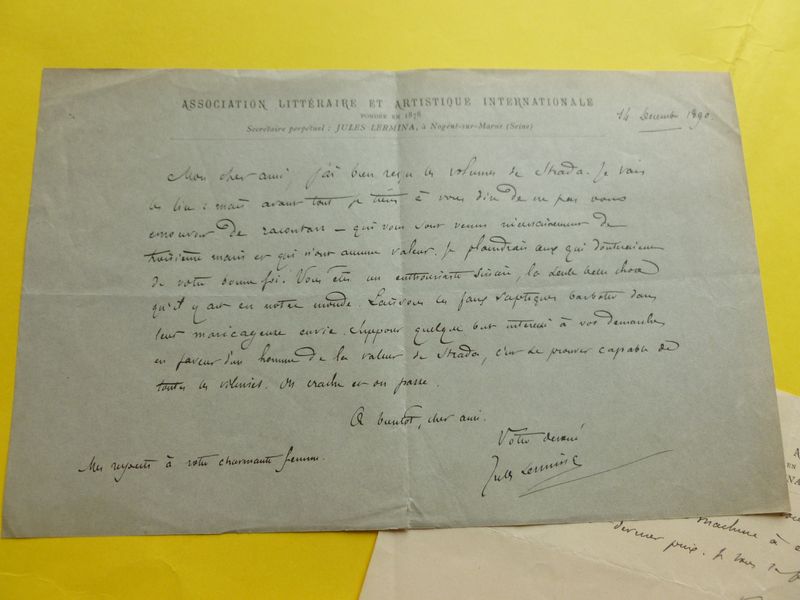 ASSOCIATION LITTÉRAIRE ET ARTISTIQUE INTERNATIONALE
FONDÉE EN 1878
Secrétaire perpétuel : JULES LERMINA, à Nogent-sur-Marne (Seine)
14 Décembre 1890
Mon cher ami, j'ai bien reçu les volumes de Strada. Je vais
les lire : mais avant tout je tiens à vous dire de ne pas vous
émouvoir de racontars – qui vous sont venus nécessairement de
troisième main et qui n'ont aucune valeur. Je plaindrais ceux qui douteraient
de votre bonne foi. Vous êtes un enthousiaste sincère, la seule belle chose
qu'il y ait en notre monde. Laissons les faux sceptiques barboter dans
leur marécageuse envie. Supposer quelque but intéressé à vos démarches
en faveur d'un homme de la valeur de Strada, c'est se prouver capable de
toutes les vilenies. On crache et on passe.
A bientôt, cher ami.
Votre dévoué
Jules Lermina
Mes respects à votre charmante femme.
machine à
dernier prix. Je vous